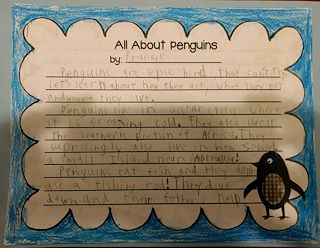 All About Penguins
by: Frankie
Penguins are epic bird that can't fly
let's learn about how they act, what they eat
and where they live.
Penguins live in antarctica where
it is freasing cold. They also live in
the Southern portion of Africa. They
suprisingly also live in new
a small Island near Australia!
Penguins eat fish and they don't
use a fishing rod! They dive
down and their fether help